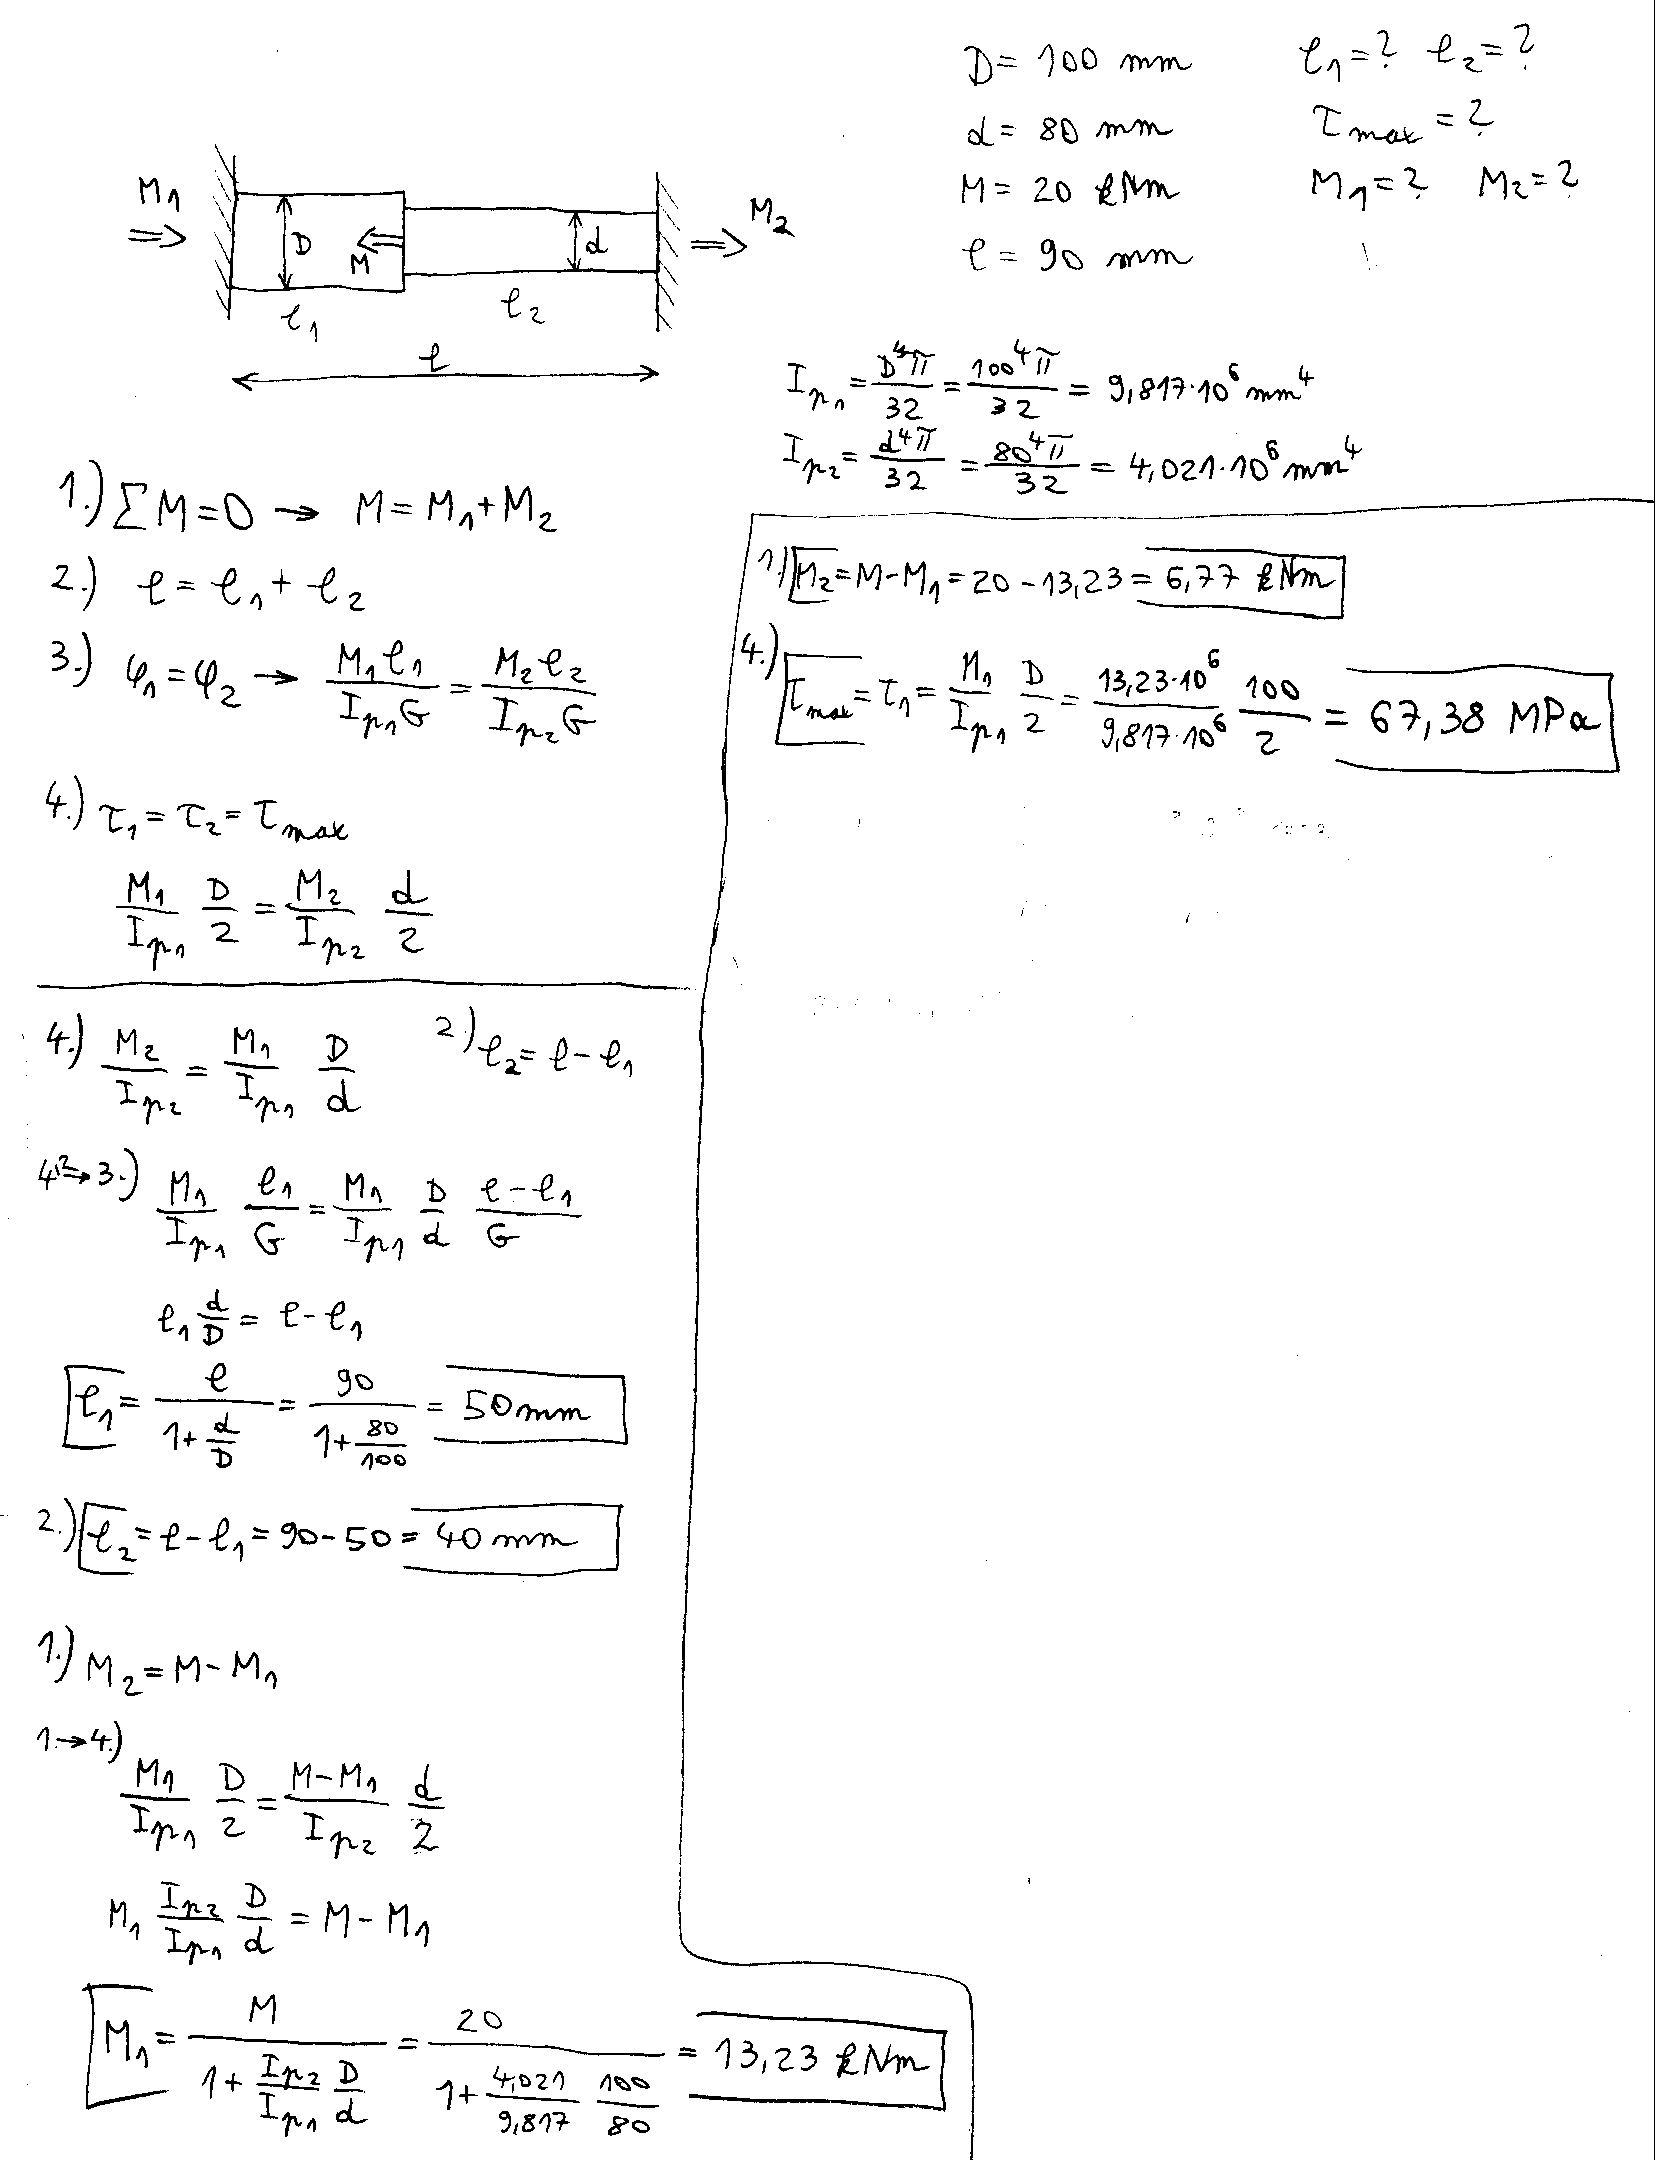 D = 100 mm   ℓ₁ = ?   ℓ₂ = ?
d = 80 mm   τmax = ?
M = 20 kNm   M₁ = ?   M₂ = ?
ℓ = 90 mm
M₁
D
M
d
M₂
ℓ₁
ℓ₂
ℓ
Ip₁ = D⁴π/32 = 100⁴π/32 = 9,817·10⁶ mm⁴
Ip₂ = d⁴π/32 = 80⁴π/32 = 4,021·10⁶ mm⁴
1.) ΣM = 0 → M = M₁ + M₂
2.) ℓ = ℓ₁ + ℓ₂
3.) φ₁ = φ₂ → M₁ℓ₁/Ip₁G = M₂ℓ₂/Ip₂G
4.) τ₁ = τ₂ = τmax
M₁/Ip₁ D/2 = M₂/Ip₂ d/2
4.) M₂/Ip₂ = M₁/Ip₁ D/d   2.) ℓ₂ = ℓ - ℓ₁
4,2→3.) M₁/Ip₁ ℓ₁/G = M₁/Ip₁ D/d ℓ-ℓ₁/G
ℓ₁ d/D = ℓ - ℓ₁
ℓ₁ = ℓ/(1+d/D) = 90/(1+80/100) = 50 mm
2.) ℓ₂ = ℓ - ℓ₁ = 90 - 50 = 40 mm
1.) M₂ = M - M₁
1.→4.)
M₁/Ip₁ D/2 = M-M₁/Ip₂ d/2
M₁ Ip₂/Ip₁ D/d = M - M₁
M₁ = M/(1+Ip₂/Ip₁ D/d) = 20/(1+4,021/9,817 100/80) = 13,23 kNm
1.) M₂ = M - M₁ = 20 - 13,23 = 6,77 kNm
4.) τmax = τ₁ = M₁/Ip₁ D/2 = 13,23·10⁶/9,817·10⁶ 100/2 = 67,38 MPa